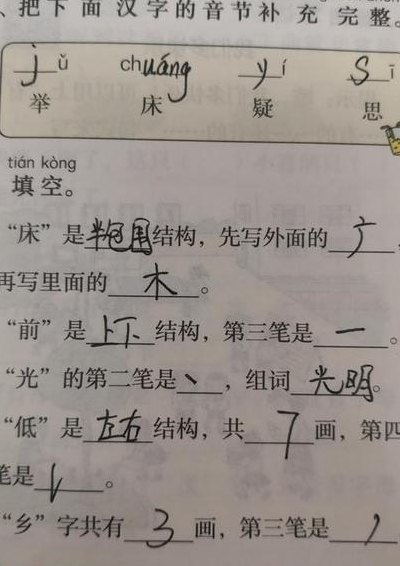 、把下面汉字的音节补充完整。
jǔ chuáng yí sī
举 床 疑 思
tián kòng
填空。
“床”是半包围结构，先写外面的广，
再写里面的木。
“前”是上下结构，第三笔是一。
“光”的第二笔是丶，组词光明。
“低”是左右结构，共7画，第四
笔是㇙。
“乡”字共有3画，第三笔是丿